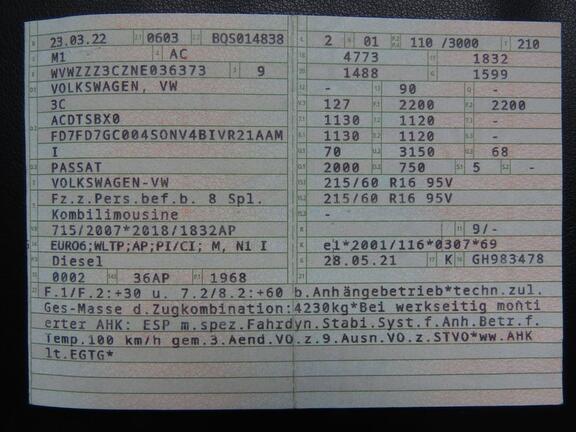 23.03.22 0603 BQS014838
M1 AC
WVWZZZ3CZNE036373 9
VOLKSWAGEN, VW
3C
ACDTSBX0
FD7FD7GC004SONV4BIVR21AAM
I
PASSAT
VOLKSWAGEN-VW
Fz.z.Pers.bef.b. 8 Spl.
Kombilimousine
715/2007*2018/1832AP
EURO6;WLTP;AP;PI/CI; M, N1 I
Diesel
0002 36AP 1968
2 01 110 /3000 210
4773 1832
1488 1599
- 90 -
127 2200 2200
1130 1120 -
1130 1120 -
70 3150 68
2000 750 5 -
215/60 R16 95V
215/60 R16 95V
-
9/-
e1*2001/116*0307*69
28.05.21 K GH983478
F.1/F.2:+30 u. 7.2/8.2:+60 b.Anhängebetrieb*techn.zul.
Ges-Masse d.Zugkombination:4230kg*Bei werkseitig monti
erter AHK: ESP m.spez.Fahrdyn.Stabi.Syst.f.Anh.Betr.f.
Temp.100 km/h gem.3.Aend.VO.z.9.Ausn.VO.z.STVO*ww.AHK
lt.EGTG*